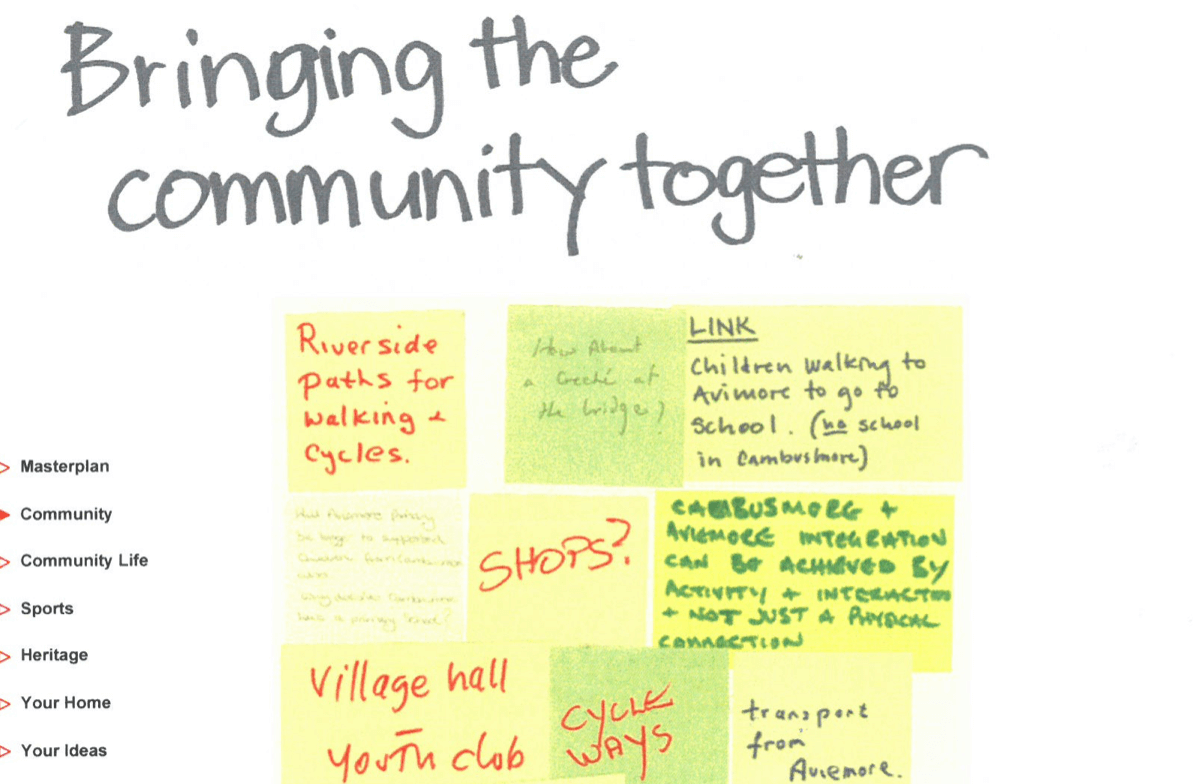 Bringing the
community together
Riverside
paths for
walking +
Cycles.
How About
a Creché at
the bridge?
LINK
Children walking to
Avimore to go to
School. (no school
in Cambusmore)
Aviemore Primary
be large to support
Children from
a primary
SHOPS?
CAMBUSMORE +
AVIEMORE INTEGRATION
CAN BE ACHIEVED BY
ACTIVITY + INTERACTION
+ NOT JUST A PHYSICAL
CONNECTION
Village hall
–
Youth club
CYCLE
WAYS
transport
from
Aviemore.
Masterplan
Community
Community Life
Sports
Heritage
Your Home
Your Ideas